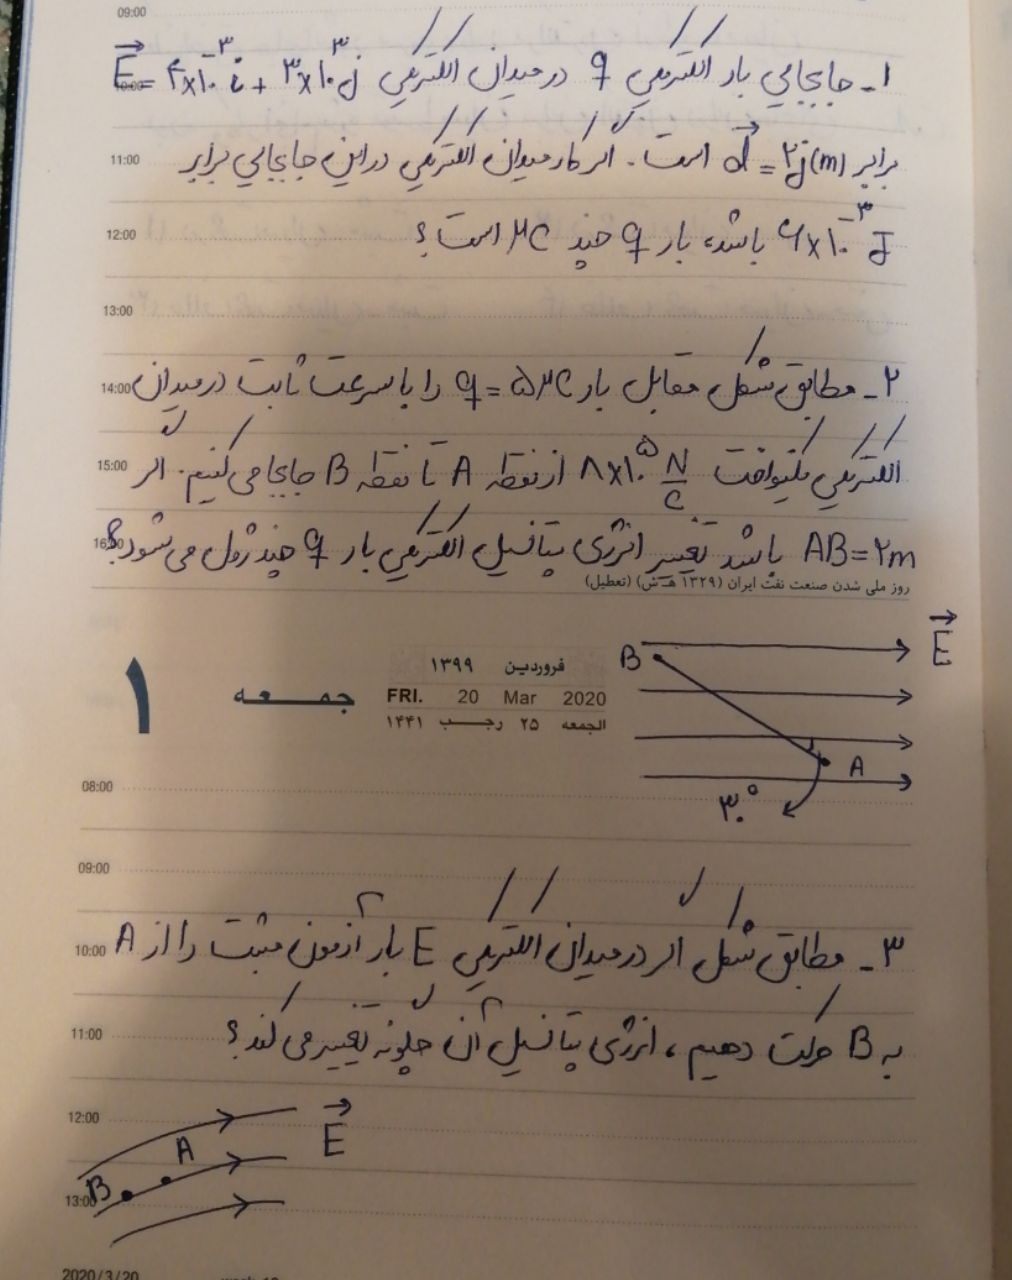 09:00
۱- جابجایی بار الکتریکی q در میدان الکتریکی E = ۴×۱۰^-۳ i + ۳×۱۰^۳ j
10:00
برابر d = ۲j(m) است. اگر کار میدان الکتریکی در این جابجایی برابر
11:00
۶×۱۰^-۳ J باشد، بار q چند μC است؟
12:00
13:00
۲- مطابق شکل مقابل بار q = ۵μC را با سرعت ثابت در میدان
14:00
الکتریکی یکنواخت ۸×۱۰^۵ N/C از نقطه A تا نقطه B جابجا می کنیم. اگر
15:00
AB = ۲m باشد تغییر انرژی پتانسیل الکتریکی بار q چند ژول می شود؟
16:00
روز ملی شدن صنعت نفت ایران (۱۳۲۹ هـ.ش) (تعطیل)
B E
۱ جمعه فروردین ۱۳۹۹
FRI. 20 Mar 2020
الجمعه ۲۵ رجب ۱۴۴۱
A
۳۰°
08:00
09:00
۳- مطابق شکل اگر در میدان الکتریکی E بار آزمون مثبت را از A
10:00
به B حرکت دهیم، انرژی پتانسیل آن چگونه تغییر می کند؟
11:00
12:00
E
A
B
13:00
2020/3/20